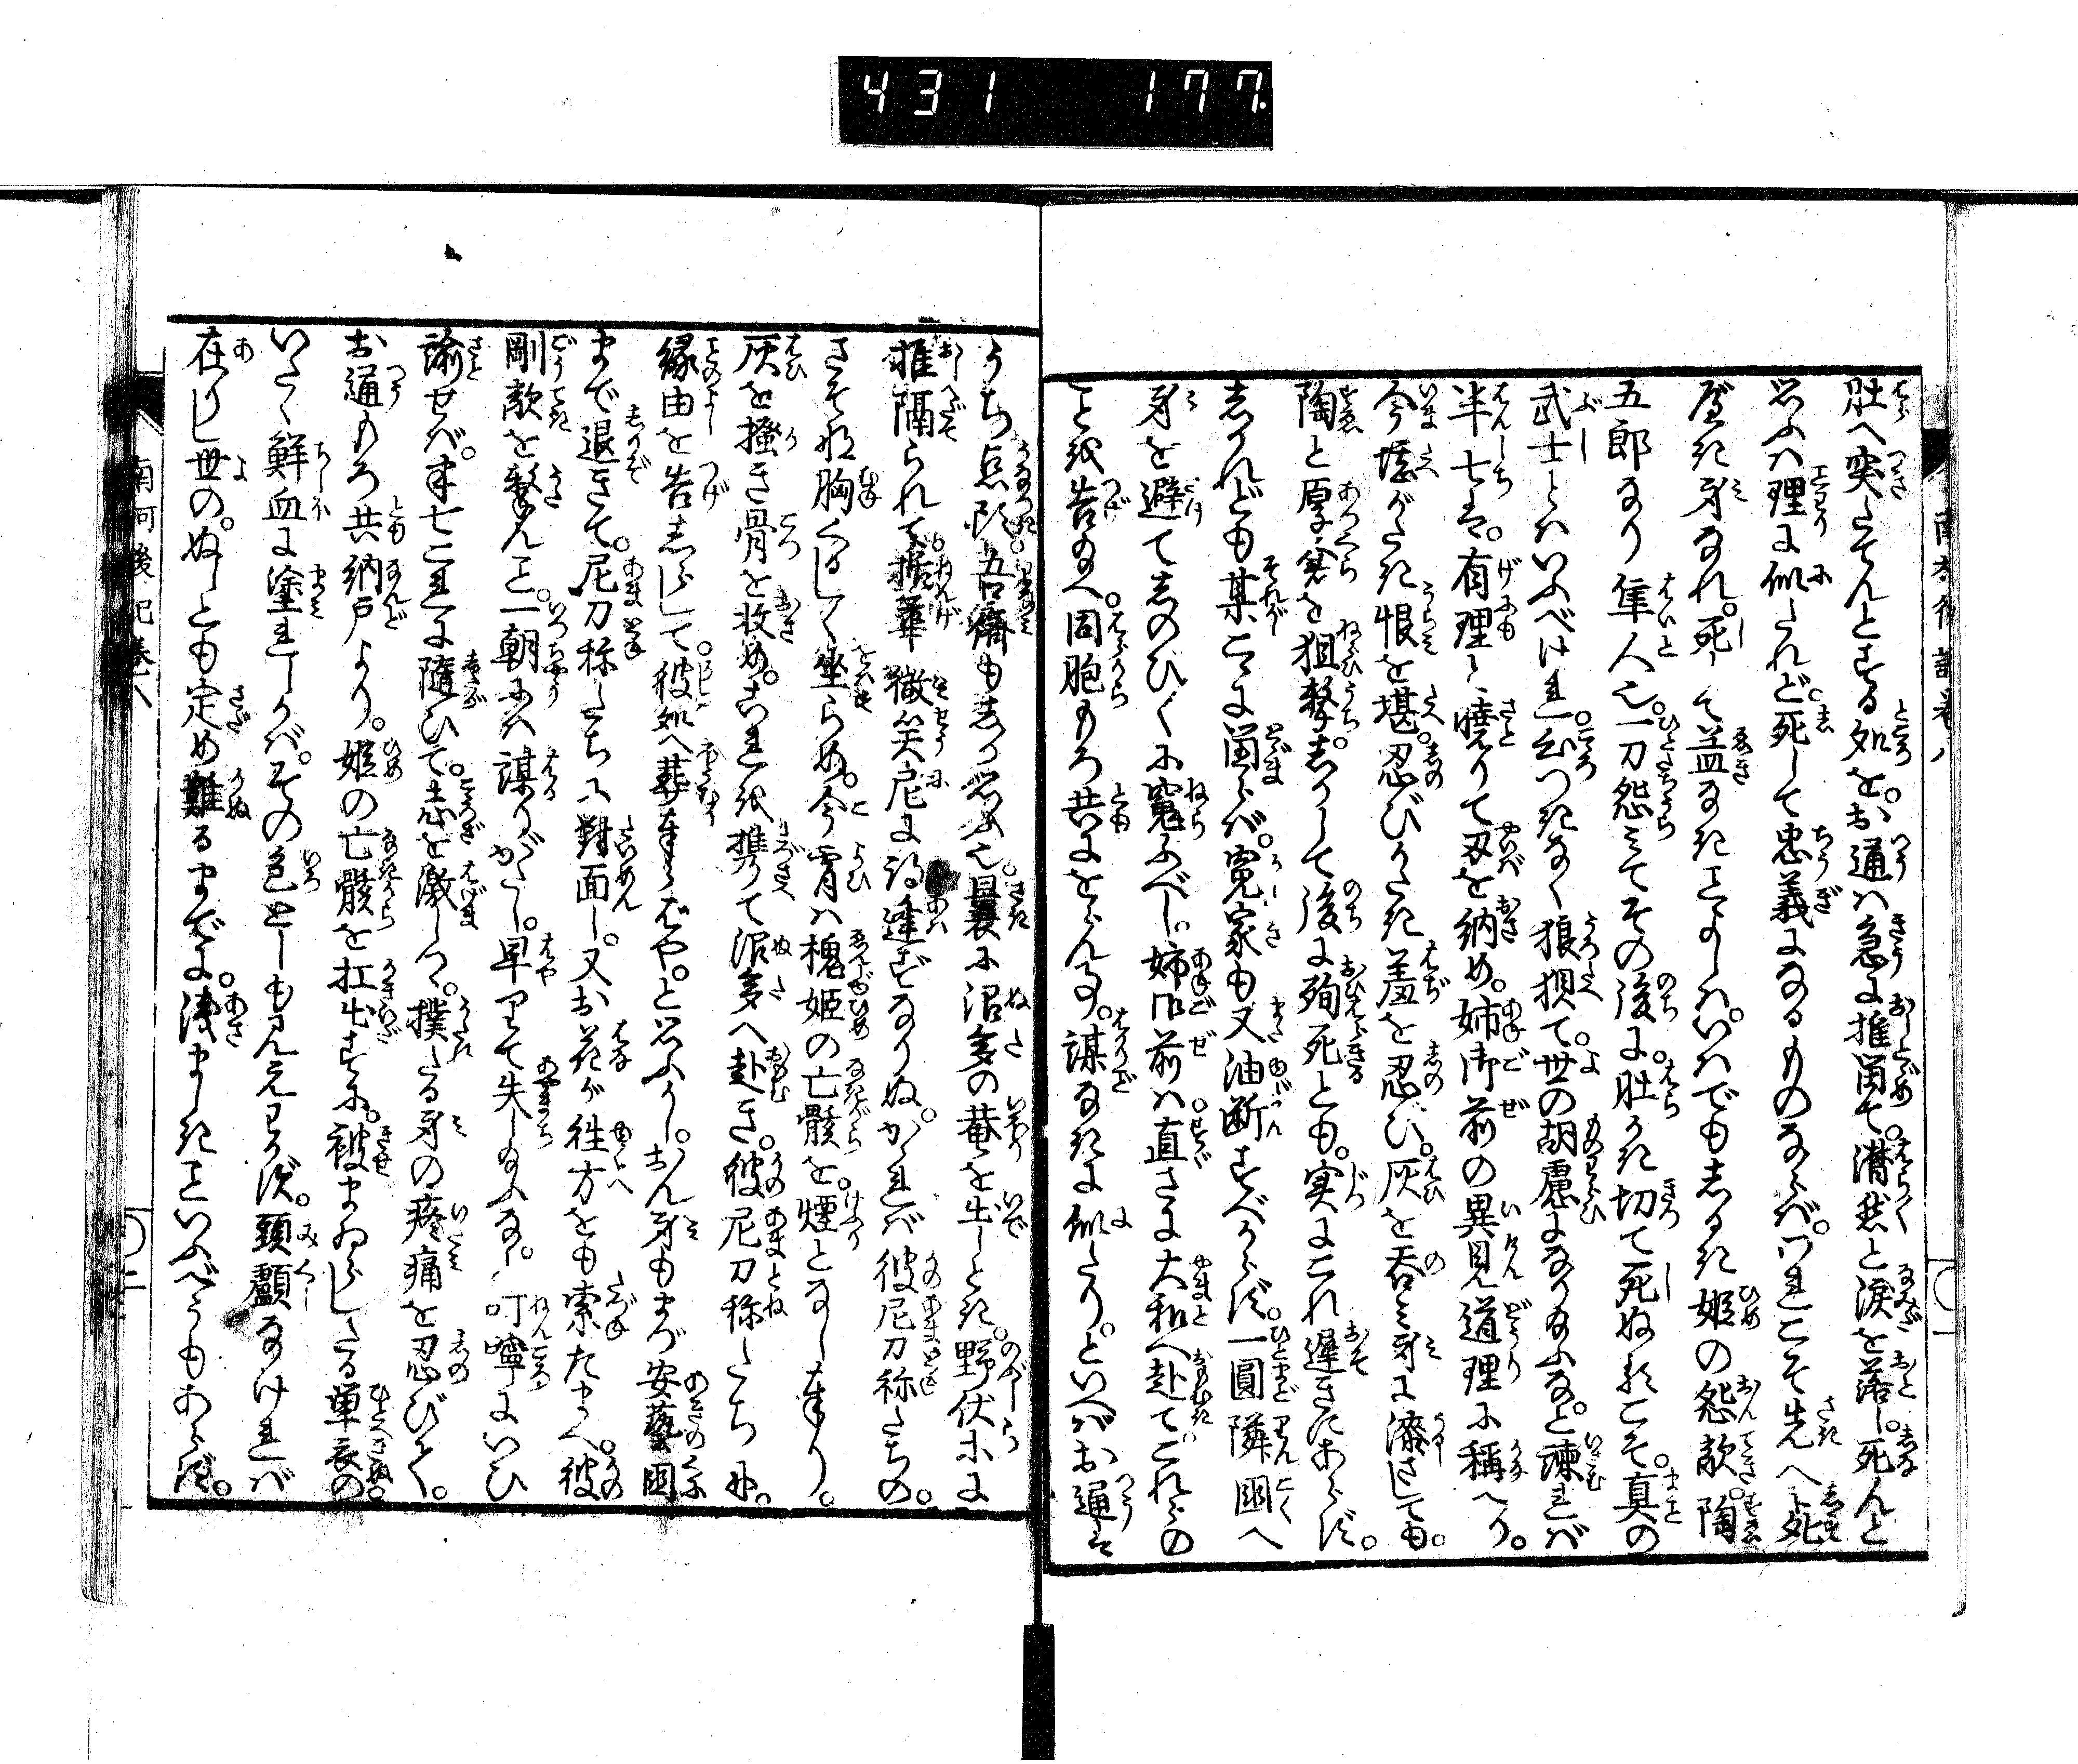 431 177.
肚へ突たてんとする処を。お通は急に推留て。潸然と涙を落し。死んと
思ふは理に似たれど。死して忠義になるものならば。われこそ先へ死
べき身なれ。死して益なきことよしは。いはでもしるき姫の怨敵。陶
五郎なり隼人也。一刀怨みてその後に。肚かき切て死ぬるこそ。真の
武士とはいふべけれ。心つきなく狼狽て。世の胡慮になり給ふなと諫れば
半七は。有理と暁りて刃を納め。姉御前の異見道理に称へり。
今堪がたき恨を堪。忍びがたき羞を忍び。灰を呑み身に漆さしても。
陶と厚倉を狙撃。しかして後に殉死とも。実にこれ遅きにあらず。
しかれども某こゝに留らば。寃家も又油断すべからず。一圓隣国へ
身を避てしのび〳〵に窺ふべし。姉御前は直さまに大和へ赴て。これらの
ことを告給へ。同胞もろ共にをらん事。謀なきに似たり。といへばお通は
うち点頭。吾儕もしか思ふ也。曩に沼多の菴を出しとき。野伏等に
推隔られて。拈華微笑尼に得逢ずなりぬ。かゝれば彼尼刀祢たちの。
さぞな胸くるしく坐らめ。今宵は槐姫の亡骸を。煙となし奉り。
灰を掻き骨を收め。これを携て沼多へ赴き。彼尼刀祢たちに。
縁由を告しらして。彼処へ葬奉らばや。と思ふかし。おん身もまづ安藝国
まで退きて。尼刀祢たちに對面し。又お花が往方をも索たまへ。彼
剛敵を撃んこと。一朝には謀りがたし。早りて失し給ふな。と叮嚀にいひ
諭せば。半七これに隨ひて。志を激しつゝ。撲たる身の疼痛を忍びて。
お通もろ共納戸より。姫の亡骸を扛出すに。被まゐらしたる単衣の
いたく鮮血に塗れしかば。その色としも見えわかず。頭顱なければ
在りし世の。ぬしとも定め難るまでに。浅ましきといふべうもあらず。
南柯後記巻八